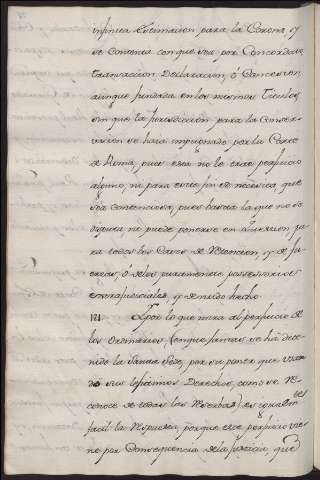 infinita estimacion para la Corona, y
se Contenta con que sea por Concordato,
transaccion, Declaracion, ô Concesion,
aunque fundada en los mismos Titulos,
sin que la Jurisdiccion para la Conser-
vacion se haia impugnado por la Corte
de Roma, pues esta no le trae perjuicio
alguno, ni para este fin se necesita que
sea Contenciosa, pues basta la que no se
disputa ni puede ponerse en question pa-
ra todos los Casos de Retencion, y de fu-
erzas, ô de los puramente possessorios
extrajudiciales, y de nudo hecho.
181. Por lo que mira al perjuicio de
los Ordinarios, (en que jamas se ha dete-
nido la Santa Sede, por suponer que usan-
do sus legitimos Derechos, como se re-
conoce de todas las Reservas) es igualm.te
facil la Respuesta, porque este perjuicio vie-
ne por Consequencia de la justicia que